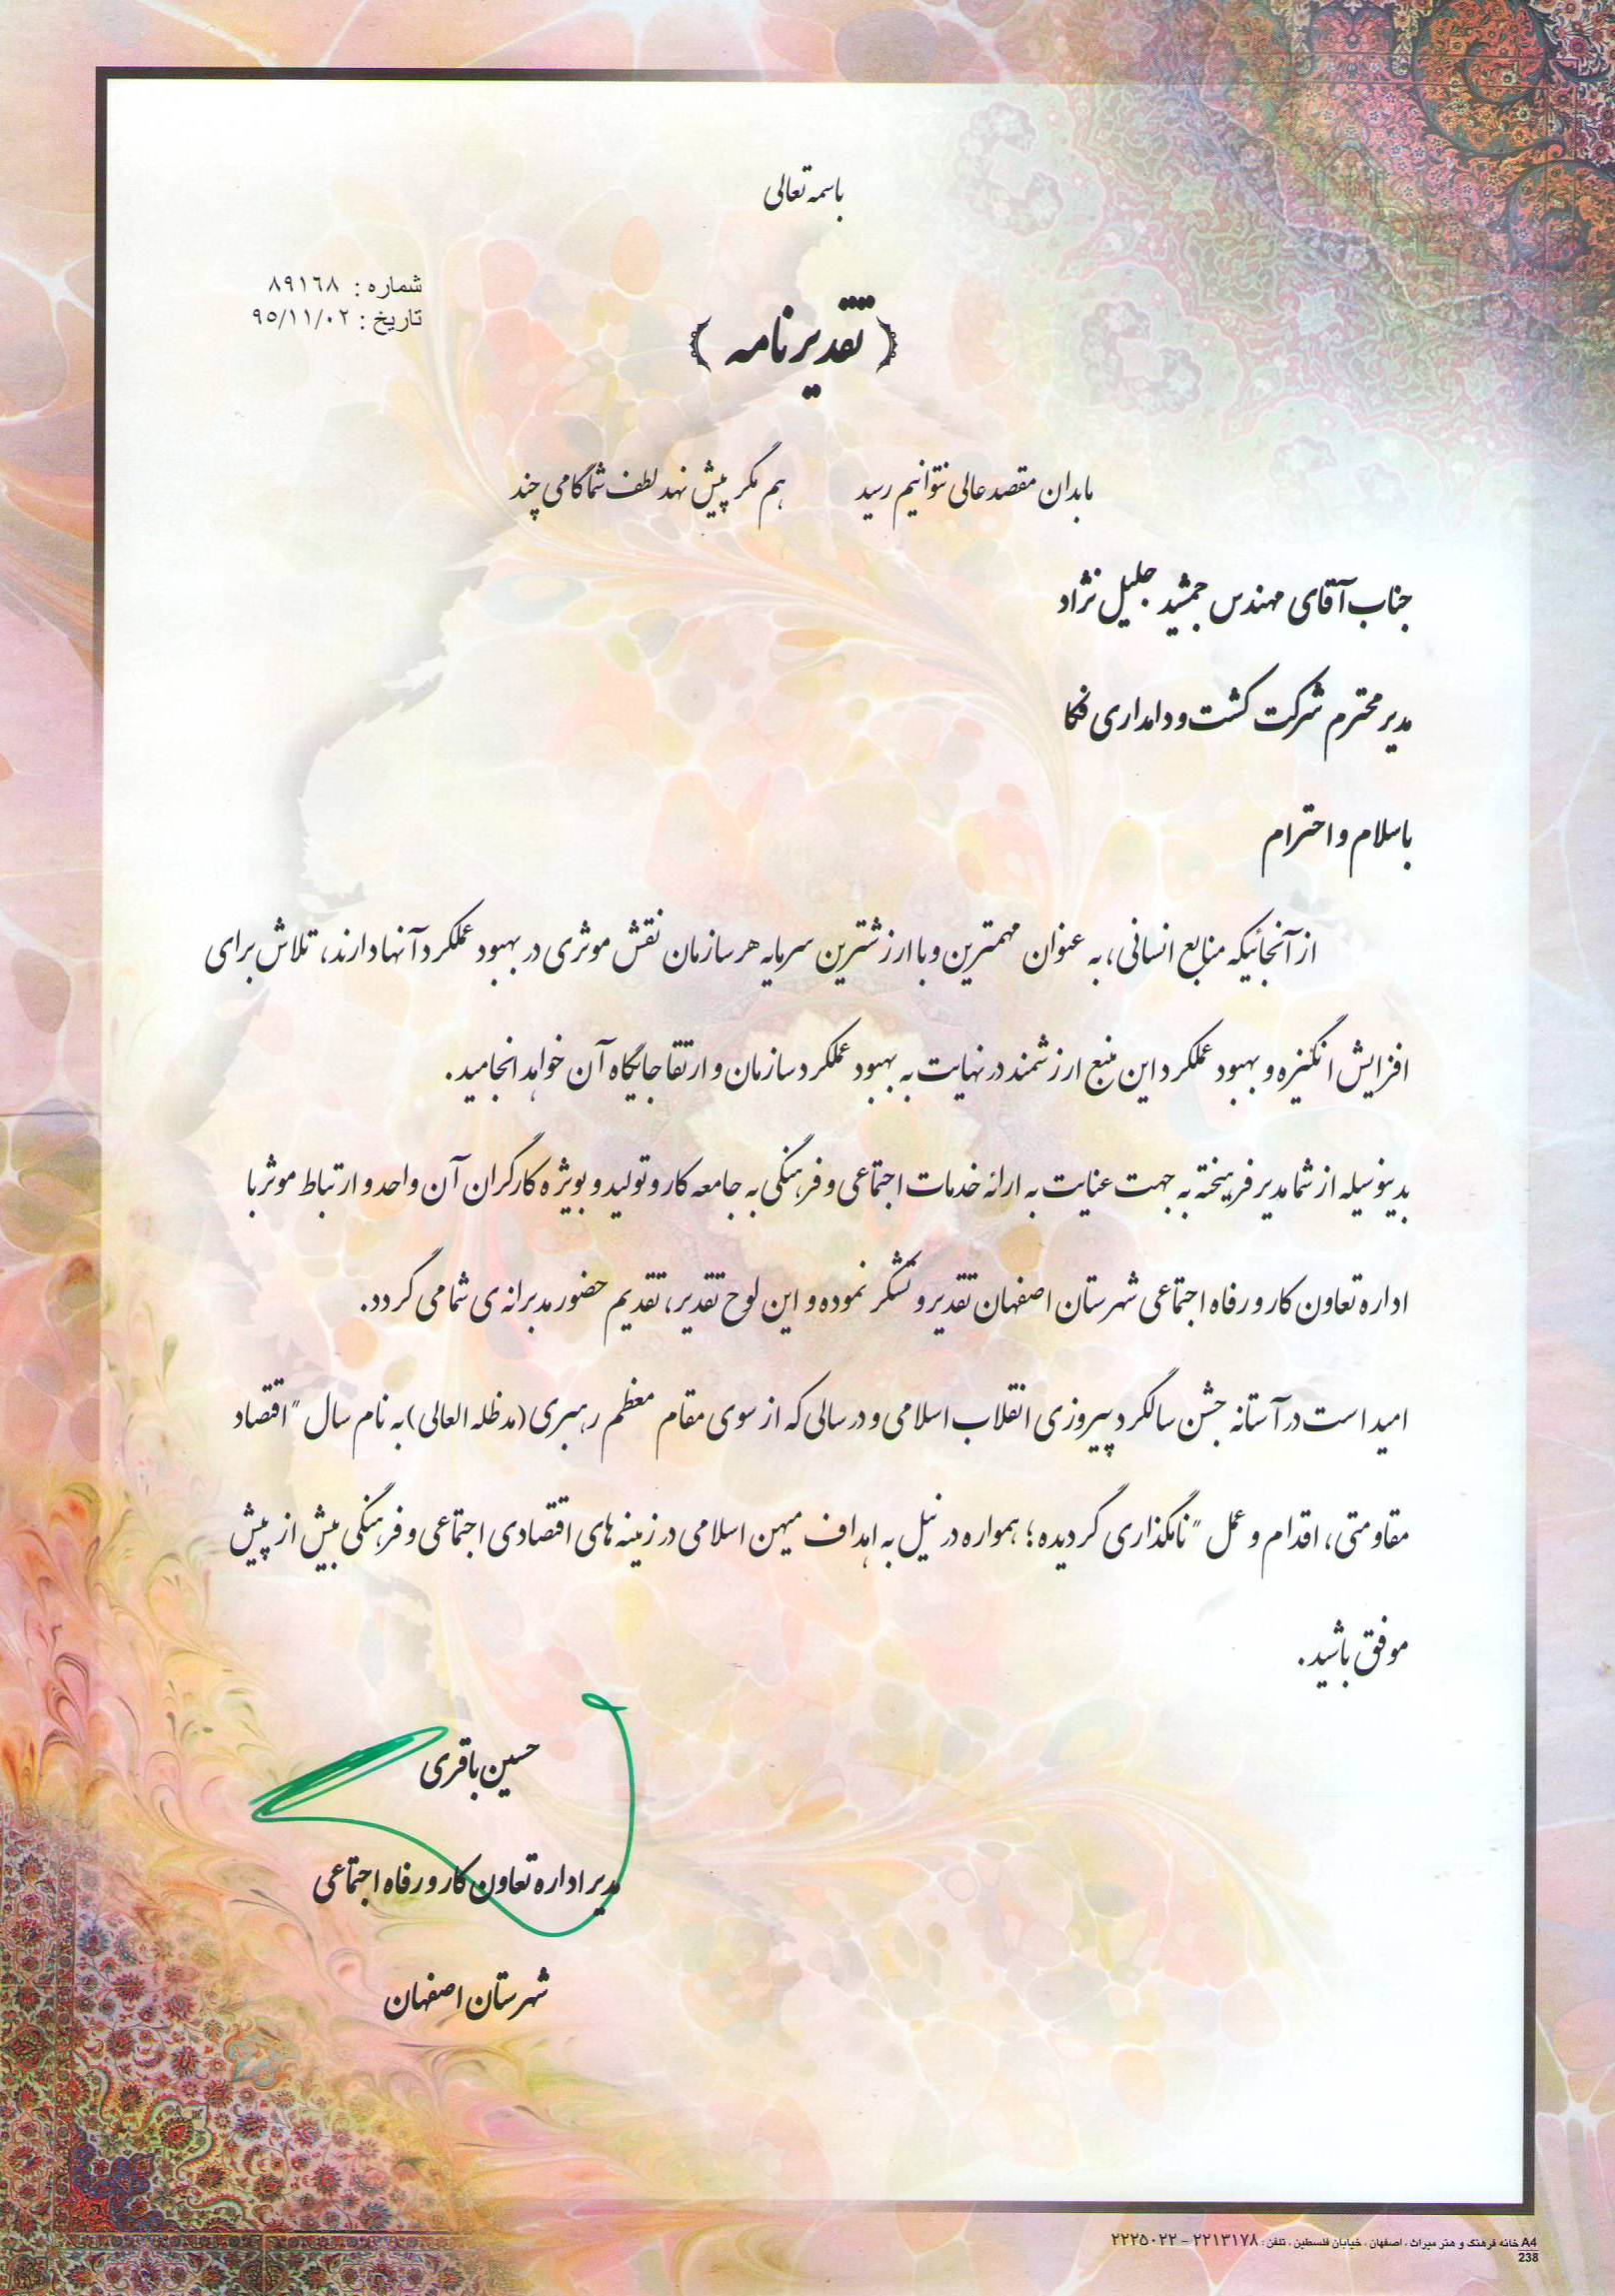 باسمه تعالی
شماره : ۸۹۱۶۸
تاریخ : ۹۵/۱۱/۰۲
﴿ تقدیرنامه ﴾
ما بدان مقصد عالی نتوانیم رسید هم مگر پیش نهد لطف شما گامی چند
جناب آقای مهندس جمشید جلیل نژاد
مدیر محترم شرکت کشت و دامداری فکا
با سلام و احترام
از آنجائیکه منابع انسانی، به عنوان مهمترین و با ارزشترین سرمایه هر سازمان نقش موثری در بهبود عملکرد آنها دارند، تلاش برای
افزایش انگیزه و بهبود عملکرد این منبع ارزشمند در نهایت به بهبود عملکرد سازمان و ارتقا جایگاه آن خواهد انجامید.
بدینوسیله از شما مدیر فرهیخته به جهت عنایت به ارائه خدمات اجتماعی و فرهنگی به جامعه کار و تولید و بویژه کارگران آن واحد و ارتباط موثر با
اداره تعاون کار و رفاه اجتماعی شهرستان اصفهان تقدیر و تشکر نموده و این لوح تقدیر، تقدیم حضور مدبرانه ی شما می گردد.
امید است در آستانه جشن سالگرد پیروزی انقلاب اسلامی و در سالی که از سوی مقام معظم رهبری (مدظله العالی) به نام سال "اقتصاد
مقاومتی، اقدام و عمل" نامگذاری گردیده؛ همواره در نیل به اهداف میهن اسلامی در زمینه های اقتصادی اجتماعی و فرهنگی بیش از پیش
موفق باشید.
حسین باقری
مدیر اداره تعاون کار و رفاه اجتماعی
شهرستان اصفهان
A4 خانه فرهنگ و هنر میراث ، اصفهان ، خیابان فلسطین ، تلفن : ۲۲۱۳۱۷۸ - ۲۲۲۵۰۲۲
238